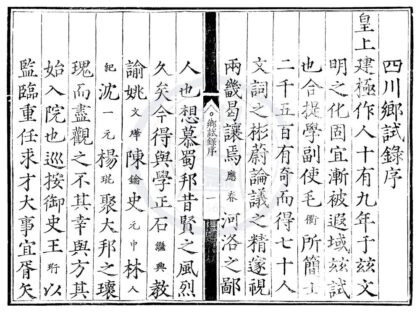 四川鄉試錄序
皇上
建極作人十有九年于玆文
明之化固宜漸被遐域玆試
也合提學副使毛衢所簡士
二千五百有奇而得七十人
文詞之彬蔚論議之精邃視
兩畿曷讓焉應春河洛之鄙
鄉試錄序
人也想慕蜀邦昔賢之風烈
久矣今得與學正石繼典教
諭姚文燁陳鑰史元中林人
紀沈一元楊琨聚大邦之瓌
瑰而盡觀之不其幸與方其
始入院也巡按御史王珩以
監臨重任求才大事宜胥矢